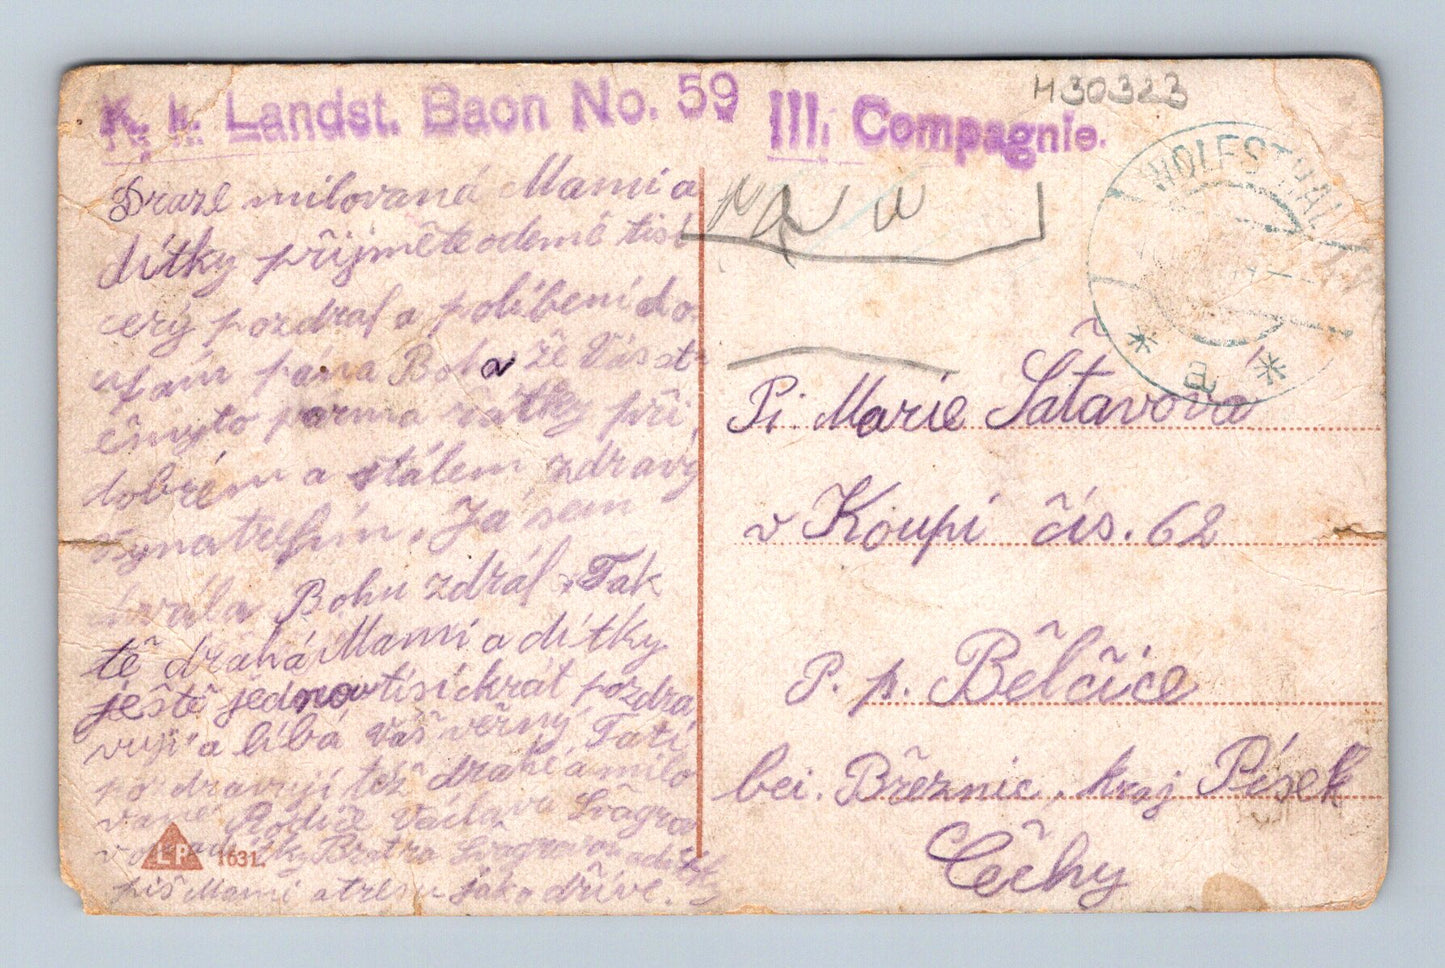 K. k. Landst. Baon No. 59 III. Compagnie.
H30323
WOLFSTHAL
a
Drazé milovaná Mami a
dítky přijměte odemě tisí
cerý pozdraf a políbení do
ufám pána Boha že Vás st
ěmyto párma řátky při
dobrém a stálem zdravý
Já sem
chvála Bohu zdráf. Tak
tě drahá Mami a dítky
ještě jednov tisíckrát pozdra
vuji a líbá váš věrný Tatí
pozdravují též drahé a milo
vané Rodiče Václava Švagrov
Bratra Švagrovou a dítky
piš Mami adresu jako dříve.
Pí. Marie Šátavová
v Koupí čís. 62
P. p. Bělčice
bei. Březnic. kraj Písek
Čêhy
LP 1631.